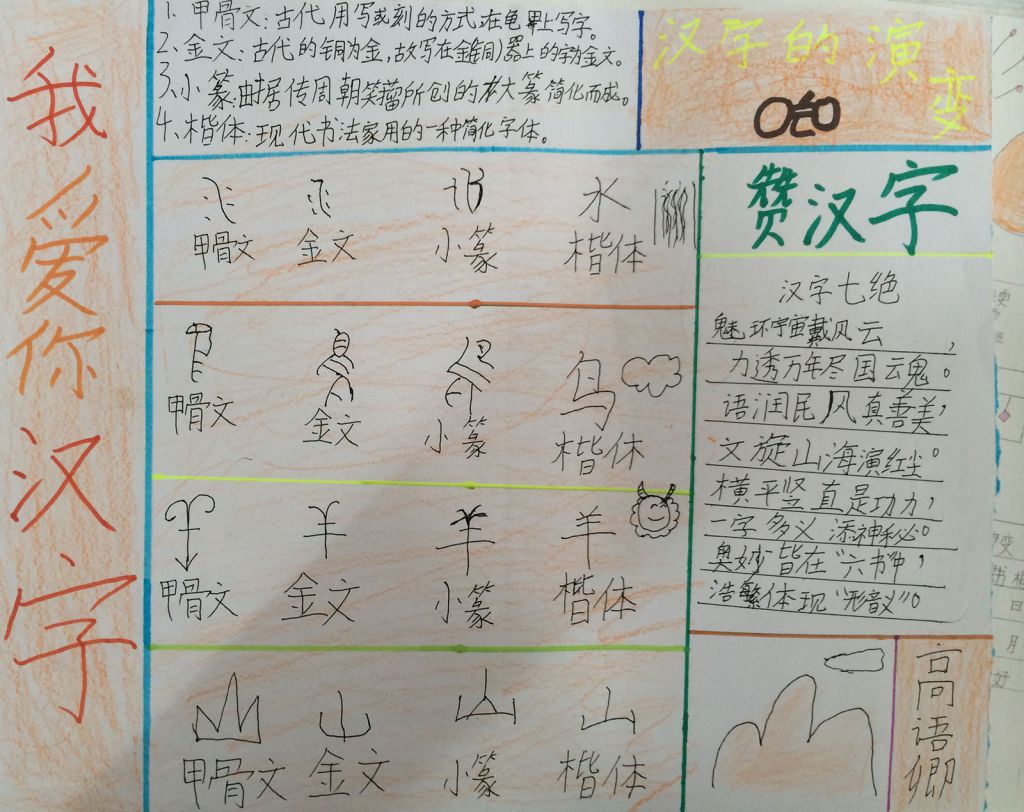 我爱你汉字
1、甲骨文:古代用写或刻的方式在龟 上写字。
2、金文:古代的铜为金,故写在 铜器上的字为金文。
3、小篆:由据传周朝 所创的大篆简化而成。
4、楷体:现代书法家用的一种简化字体。
汉字的演变
甲骨文 金文 小篆 水 楷体
甲骨文 金文 小篆 鸟 楷体
甲骨文 金文 小篆 羊 楷体
甲骨文 金文 小篆 山 楷体
赞汉字
汉字七绝
魅环宇宙戴风云,
力透万年尽国云魂。
语润民风真善美,
文旋山海演红尘。
横平竖直是功力,
一字多义添神秘。
奥妙皆在"六书"中,
浩繁体现"形音义"。
高语卿